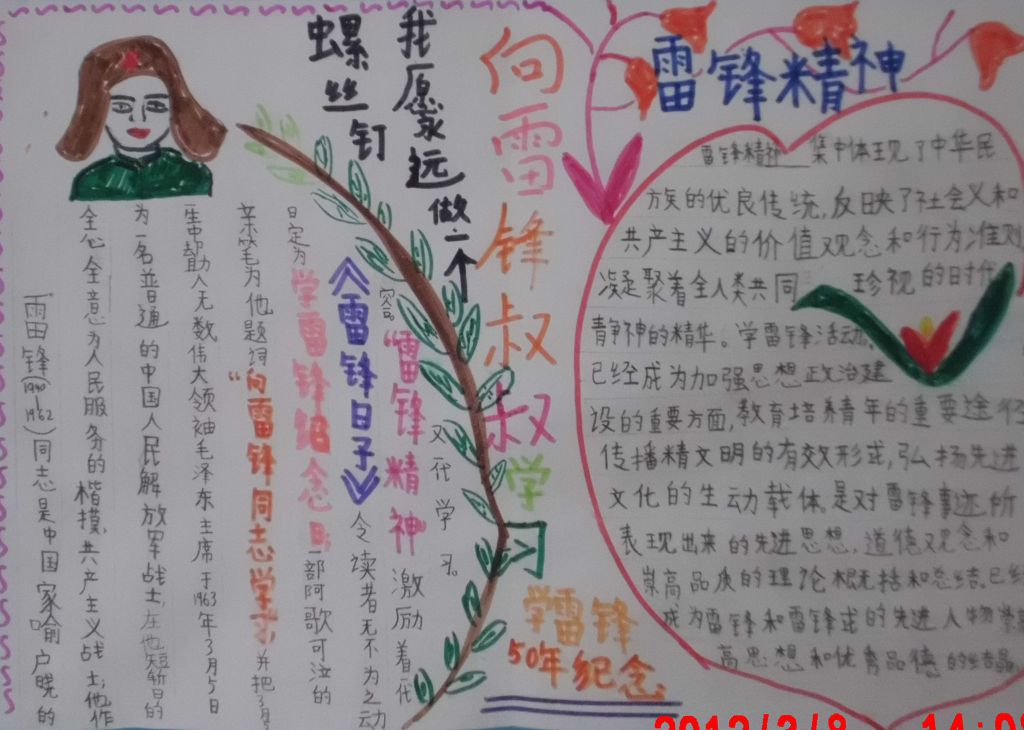 我愿永远做一个
螺丝钉
向雷锋叔叔学习
学雷锋
50年纪念
雷锋(1940
1962)同志是中国家喻户晓的
全心全意为人民服务的楷模,共产主义战士;他作
为一名普通的中国人民解放军战士,在他短暂的
生帮助人无数伟大领袖毛泽东主席于1963年3月5日
亲笔为他题词“向雷锋同志学习并把3月
日定为学雷锋纪念日;一部阿歌可泣的
《雷锋日子》令读者无不为之动
容。“雷锋精神激励着一代
又一代学习。
雷锋精神
雷锋精神 集中体现了中华民
族的优良传统,反映了社会义和
共产主义的价值观念和行为准则
凝聚着全人类共同 珍视的时代
精神的精华。学雷锋活动,
已经成为加强思想政治建
设的重要方面,教育培养青年的重要途径
传播精文明的有效形式,弘扬先进
文化的生动载体。是对雷锋事迹,所
表现出来的先进思想,道德观念和
崇高品质的理论概括和总结。已经
成为雷锋和雷锋式的先进人物
高思想和优秀品德的
2012/3/8 14:0